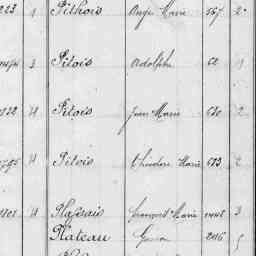 223 1 Pithois Ange Marie 167 2
3 Pitois Adolphe 62
1832 4 Pitois Jean Marie 630 2
1795 4 Pitois Théodore Marie 583 2
1801 4 Plassais Marie 3
Plateau 2016 5